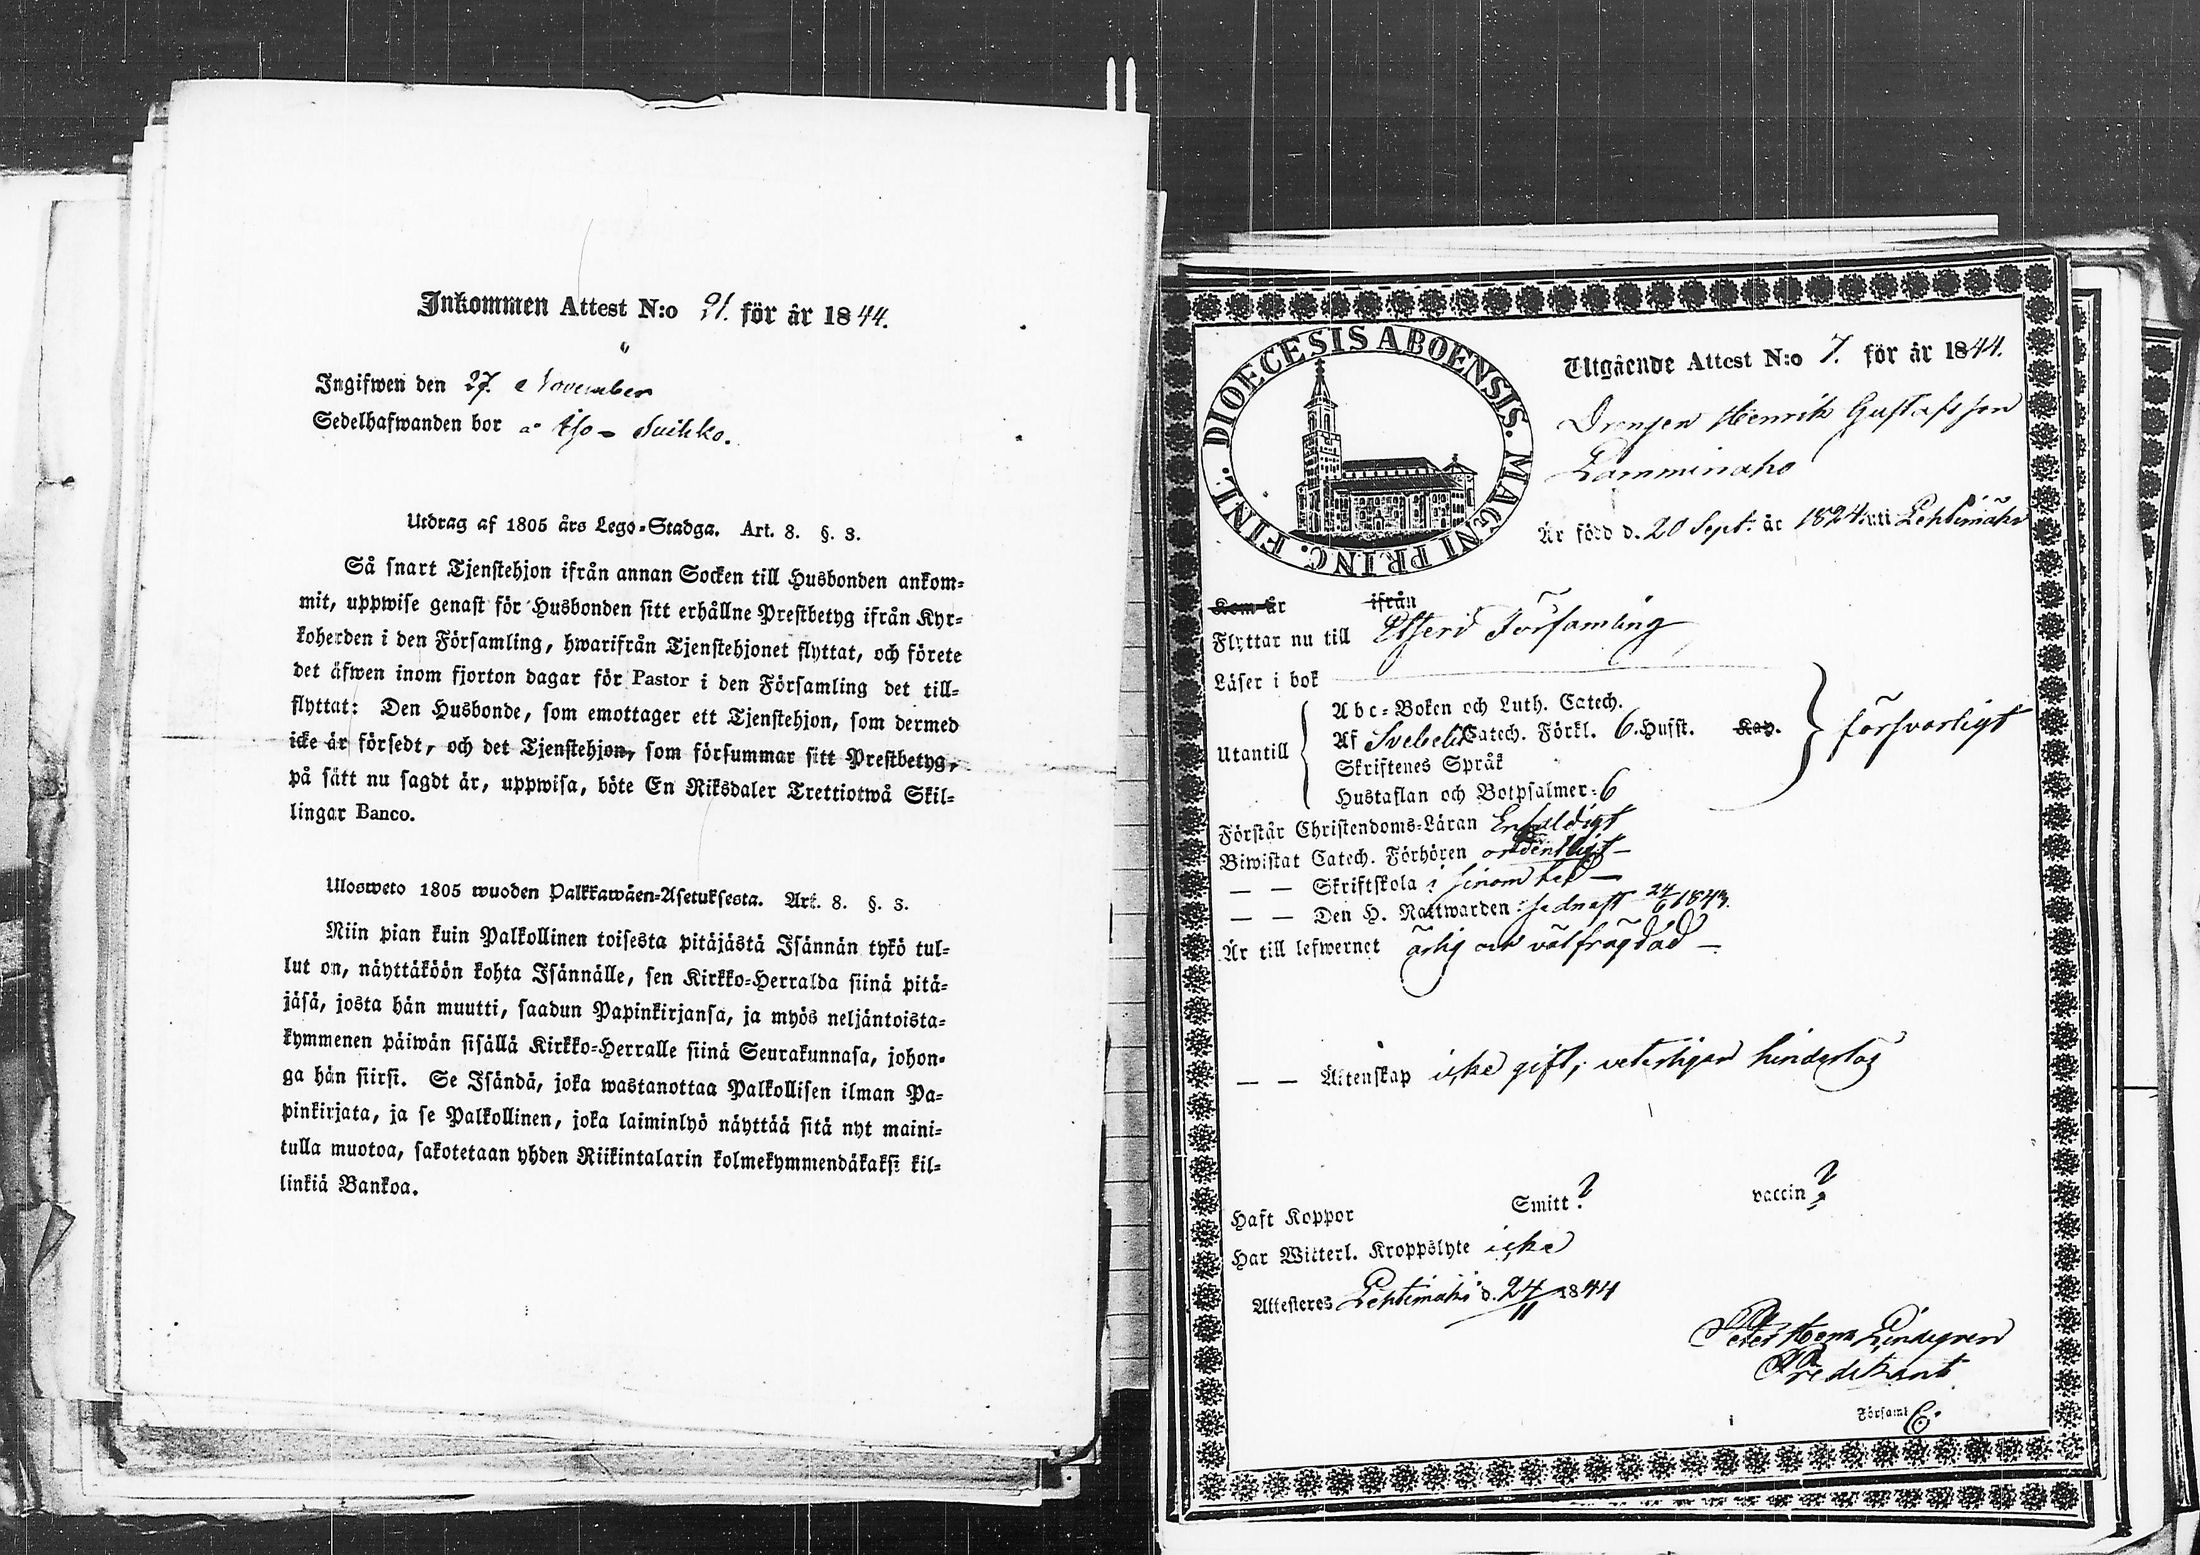 Inkommen Attest N:o 91. för år 1844.
Ingifwen den 27. November
Sedelhafwanden bor å Iso-Suikko.
Utdrag af 1805 års Lego-Stadga. Art. 8. §. 3.
Så snart Tjenstehjon ifrån annan Socken till Husbonden ankom-
mit, uppwise genast för Husbonden sitt erhållne Prestbetyg ifrån Kyr-
koherden i den Församling, hwarifrån Tjenstehjonet flyttat, och förete
det äfwen inom fjorton dagar för Pastor i den Församling det till-
flyttat: Den Husbonde, som emottager ett Tjenstehjon, som dermed
icke är försedt, och det Tjenstehjon, som försummar sitt Prestbetyg,
på sätt nu sagdt är, uppwisa, böte En Riksdaler Trettiotwå Skil-
lingar Banco.
Ulosweto 1805 wuoden Palkkawäen-Asetuksesta. Art. 8. §. 3.
Niin pian kuin Palkollinen toisesta pitäjästä Isännän tykö tul-
lut on, näyttäköön kohta Isännälle, sen Kirkko-Herralda siinä pitä-
jäsä, josta hän muutti, saadun Papinkirjansa, ja myös neljäntoista-
kymmenen päiwän sisällä Kirkko-Herralle siinä Seurakunnasa, johon-
ga hän siirsi. Se Isändä, joka wastanottaa Palkollisen ilman Pa-
pinkirjata, ja se Palkollinen, joka laiminlyö näyttää sitä nyt maini-
tulla muotoa, sakotetaan yhden Riikintalarin kolmekymmendäkaksi kil-
linkiä Bankoa.
DIOECESIS ABOENSIS. MAGNI PRINC. FINL.
Utgående Attest N:o 7. för år 1844.
Drengen Henrik Gustafsson
Lamminaho
Är född d. 20 Sept. år 1824 uti Lehtimäki
Kom år ifrån
Flyttar nu till Etseri Församling
Läser i bok
Utantill
Abc-Boken och Luth. Catech.
Af Svebelii Catech. Förkl. 6. Hufst. Kap.
Skriftenes Språk
Hustaflan och Botpsalmer 6
försvarligt
Förstår Christendoms-Läran Enfaldigt
Biwistat Catech. Förhören ordentligt
— — Skriftskola i sinom tid
— — Den H. Nattwarden sednast 24/6 1843.
Är till lefwernet ärlig och välfrägdad
— — Äktenskap icke gift; veterligen hinderlös
Haft Koppor Smitt ? vaccin ?
Har Witterl. Kroppslyte icke
Attesteres Lehtimäki d. 24/11 1844
Peter Henr Lindegren
Predikant
Församl